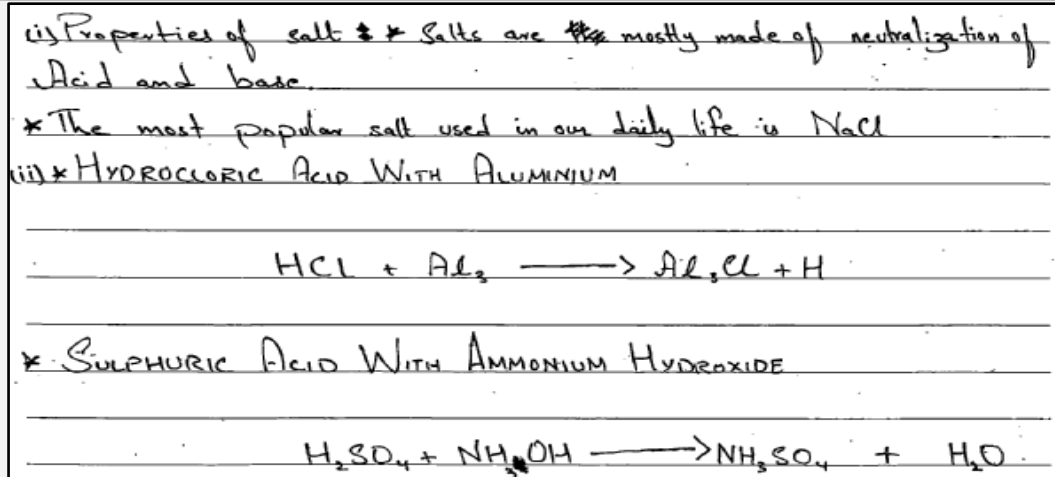 (i) Properties of salt : * Salts are mostly made of neutralization of
Acid and base.
* The most popular salt used in our daily life is NaCl
(ii) * HYDROCLORIC ACID WITH ALUMINIUM
HCl + Al₃ ⟶ Al₃Cl + H
* SULPHURIC ACID WITH AMMONIUM HYDROXIDE
H₂SO₄ + NH₃OH ⟶ NH₃SO₄ + H₂O.